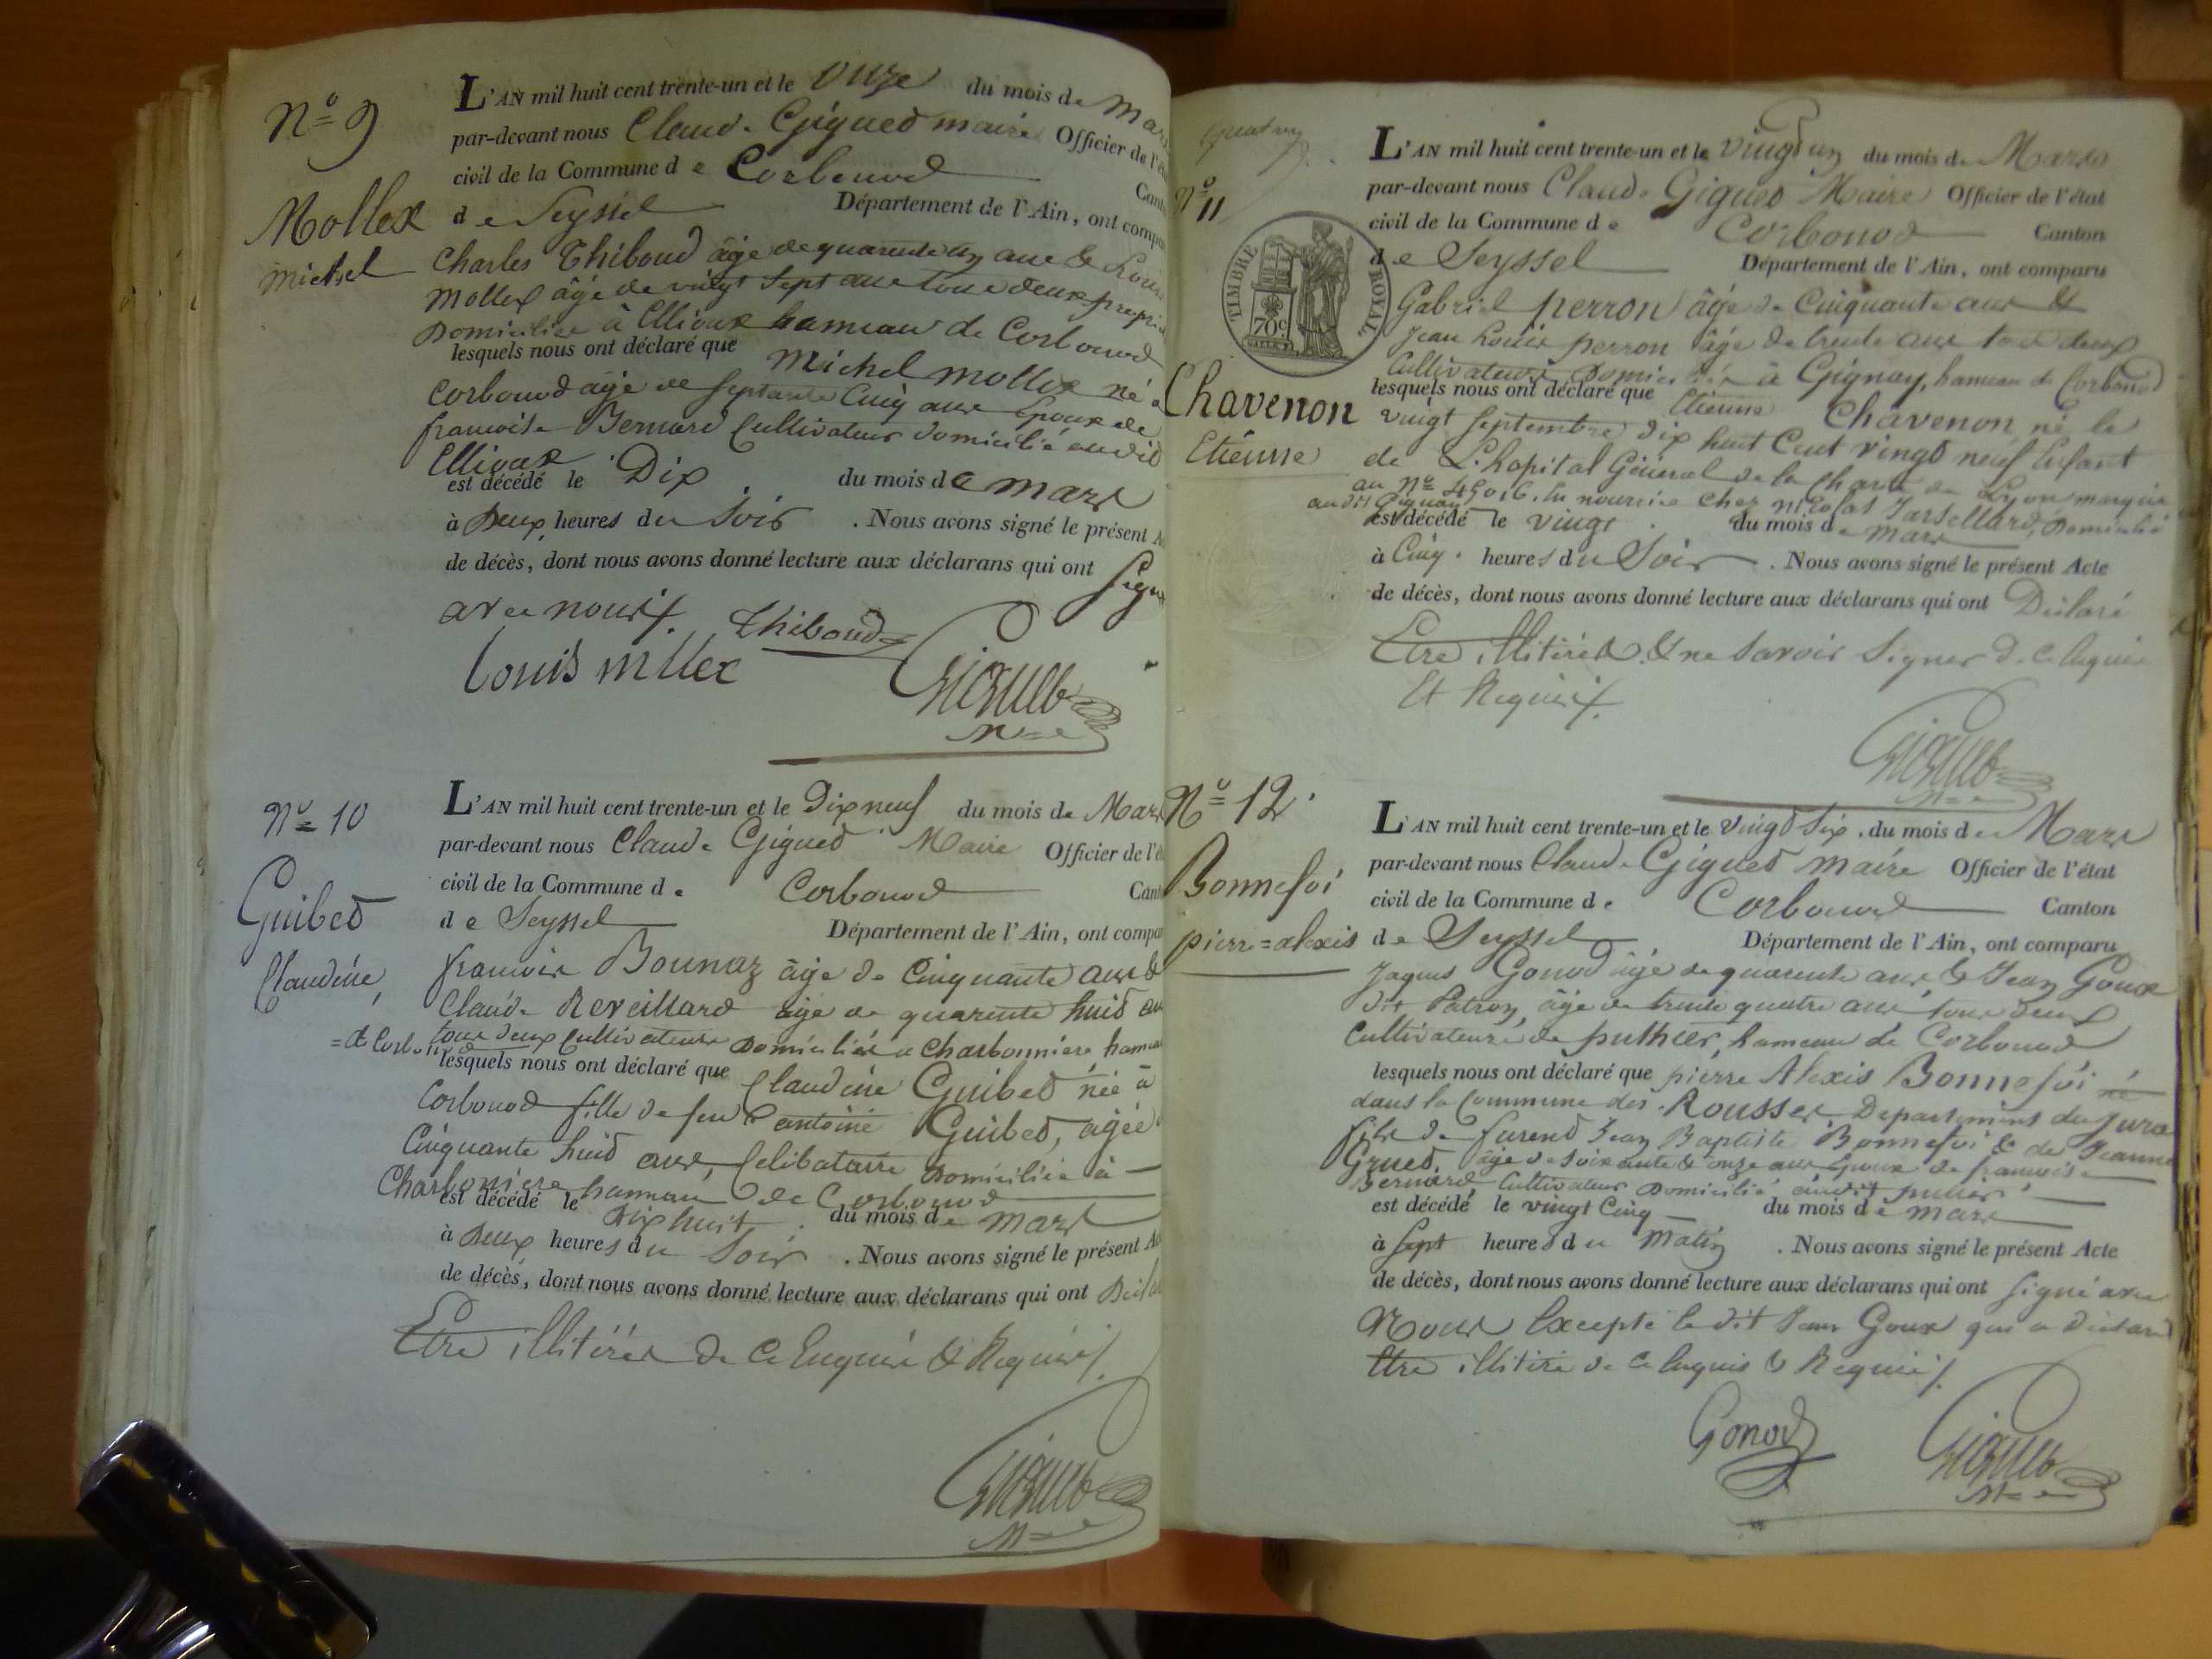 N° 9
Mollex
Michel
L'AN mil huit cent trente-un et le Onze du mois de Mars
par-devant nous Claude Gigued maire Officier de l'é
civil de la Commune de Corbonod Cant
de Seyssel Département de l'Ain, ont compa
Charles Thiboud âgé de quarente un ans & Louis
Mollex âgé de vingt Sept ans tous deux propri
Domiciliés à Ellioux hameau de Corbonod
lesquels nous ont déclaré que Michel Mollex né à
Corbonod âgé de Septante Cinq ans Epoux de
francoise Bernard Cultivateur Domicilié audit
Ellioux
est décédé le Dix du mois de mars
à Deux heures du Soir . Nous avons signé le présent A
de décès, dont nous avons donné lecture aux déclarans qui ont Signé
avec nous /.
Thiboud
Louis mllex
Gigued
M=e
N° 10
Guibed
Claudine,
L'AN mil huit cent trente-un et le Dix neuf du mois de Mars
par-devant nous Claude Gigued Maire Officier de l'é
civil de la Commune de Corbonod Cant
de Seyssel Département de l'Ain, ont compa
francois Bounaz âgé de Cinquante ans &
Claude Reveillard âgé de quarente huid ans
tous deux Cultivateurs Domiciliés a Charbonniere hameau
=de Corbonod
lesquels nous ont déclaré que Claudine Guibed née à
Corbonod fille de feu antoine Guibed, agée
Cinquante huid ans, Celibataire Domiciliée à
Charboniere hameau de Corbonod
est décédé le Dix huit du mois de Mars
à Deux heures du Soir . Nous avons signé le présent Ac
de décès, dont nous avons donné lecture aux déclarans qui ont
Etre illitéres de ce Enquis & Requis /.
Gigued
M=e
N° 11
TIMBRE ROYAL
70c
Chavenon
Etienne
L'AN mil huit cent trente-un et le Vingd un du mois de Mars
par-devant nous Claude Gigued Maire Officier de l'état
civil de la Commune de Corbonod Canton
de Seyssel Département de l'Ain, ont comparu
Gabriel perron âgé de Cinquante ans &
Jean Louis perron âgé de trente ans tous deux
Cultivateurs Domiciliés à Gignay, hameau de Corbonod
lesquels nous ont déclaré que Etienne Chavenon né le
vingt Septembre Dix huit Cent vingd neuf Enfant
de L'hopital Géneral de la Charité de Lyon marqué
au N° 45016. En nourrice chez nicolas Domicilié
audit Gignay
est décédé le vingt du mois de Mars
à Cinq heures du Soir . Nous avons signé le présent Acte
de décès, dont nous avons donné lecture aux déclarans qui ont Déclaré
Etre illitérés & ne Savoir Signer De ce Enquis
Et Requis /.
Gigued
M=e
N° 12
Bonnefoi
pierre=alexis
L'AN mil huit cent trente-un et le Vingd Six du mois de Mars
par-devant nous Claude Gigued maire Officier de l'état
civil de la Commune de Corbonod Canton
de Seyssel Département de l'Ain, ont comparu
Jaques Gonod âgé de quarente ans & Jean Goux
dit Patron, âgé de trente quatre ans, tous deux
Cultivateurs de puthier, hameau de Corbonod
lesquels nous ont déclaré que pierre Alexis Bonnefoi né
dans la Commune des Rousses Departement du Jura
fils de furend Jean Baptiste Bonnefoi & de Jeanne
Grued, âgé de Soixante & onze ans Epoux de francoise
Bernard Cultivateur Domicilié audit
est décédé le vingt Cinq du mois de mars
à Sept heures du Matin . Nous avons signé le présent Acte
de décès, dont nous avons donné lecture aux déclarans qui ont Signé avec
Nous Excepté le dit Jean Goux qui a Déclaré
Etre illitéré de ce Enquis & Requis /.
Gonod
Gigued
M=e